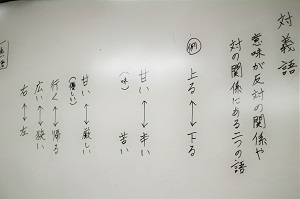 対義語
意味が反対の関係や
対の関係にある二つの語
例 上る ↔ 下る
甘い ↔ 辛い
(味) 苦い
甘い ↔ 厳しい
(優しい)
行く ↔ 帰る
広い ↔ 狭い
右 ↔ 左